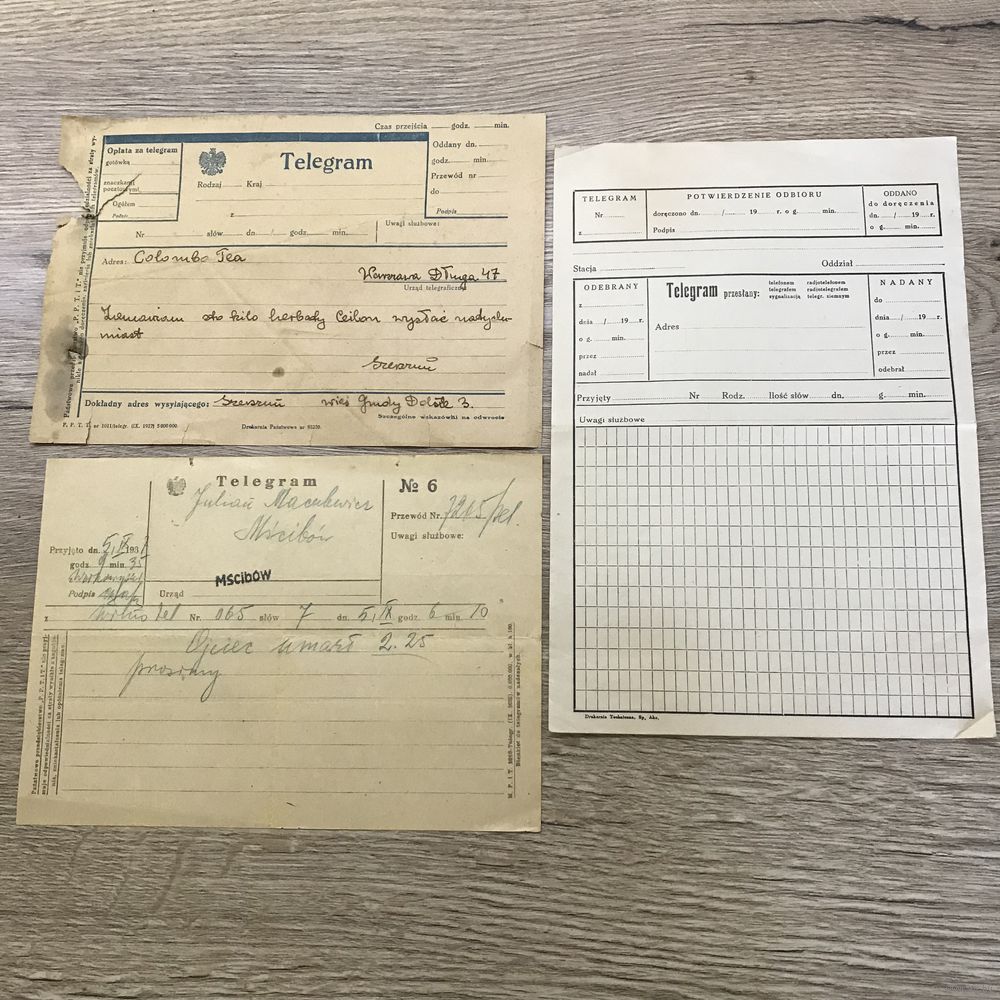 Czas przejścia ...... godz. ...... min.
Opłata za telegram
gotówką
znaczkami pocztowymi
Ogółem
Podpis
Telegram
Rodzaj ...... Kraj
z
Oddany dn.
godz. ...... min.
Przewód nr
do
Podpis
Nr ...... słów ...... dn. / godz. ...... min.
Uwagi służbowe:
Adres: Colombo Tea
Warszawa Długa 47
Urząd telegraficzny
Zamawiam sto kilo herbaty Ceilon wysłać natychmiast
Dokładny adres wysyłającego:
wieś Grudy
3.
Szczególne wskazówki na odwrocie
P. P. T. T. nr 1011/telegr. (IX. 1937) 5 000 000.
Drukarnia Państwowa nr 83230.
Telegram
№ 6
Julian
Mścibów
Przewód Nr. 7265/tel.
Uwagi służbowe:
Przyjęto dn. 5/IX 193
godz. 9 min. 35
Podpis
Urząd
MŚCIBÓW
z Wilno tel Nr. 065 słów 7 dn. 5/IX godz. 6 min. 10
Ojciec umarł 2.25
prosimy
TELEGRAM
Nr
z
POTWIERDZENIE ODBIORU
doręczono dn. ...... / ...... 19 ...... r. o g. ...... min.
Podpis
ODDANO
do doręczenia
dn. ...... / ...... 19 ...... r.
o g. ...... min.
Stacja
Oddział
ODEBRANY
z
dnia ...... / ...... 19 ...... r.
o g. ...... min.
przez
nadał
Telegram przesłany:
telefonem radiotelefonem
telegrafem radiotelegrafem
sygnalizacją telegr. ziemnym
Adres
NADANY
do
dnia ...... / ...... 19 ...... r.
o g. ...... min.
przez
odebrał
Przyjęty ...... Nr Rodz. Ilość słów dn. g. min.
Uwagi służbowe
Drukarnia Techniczna, Sp. Akc.